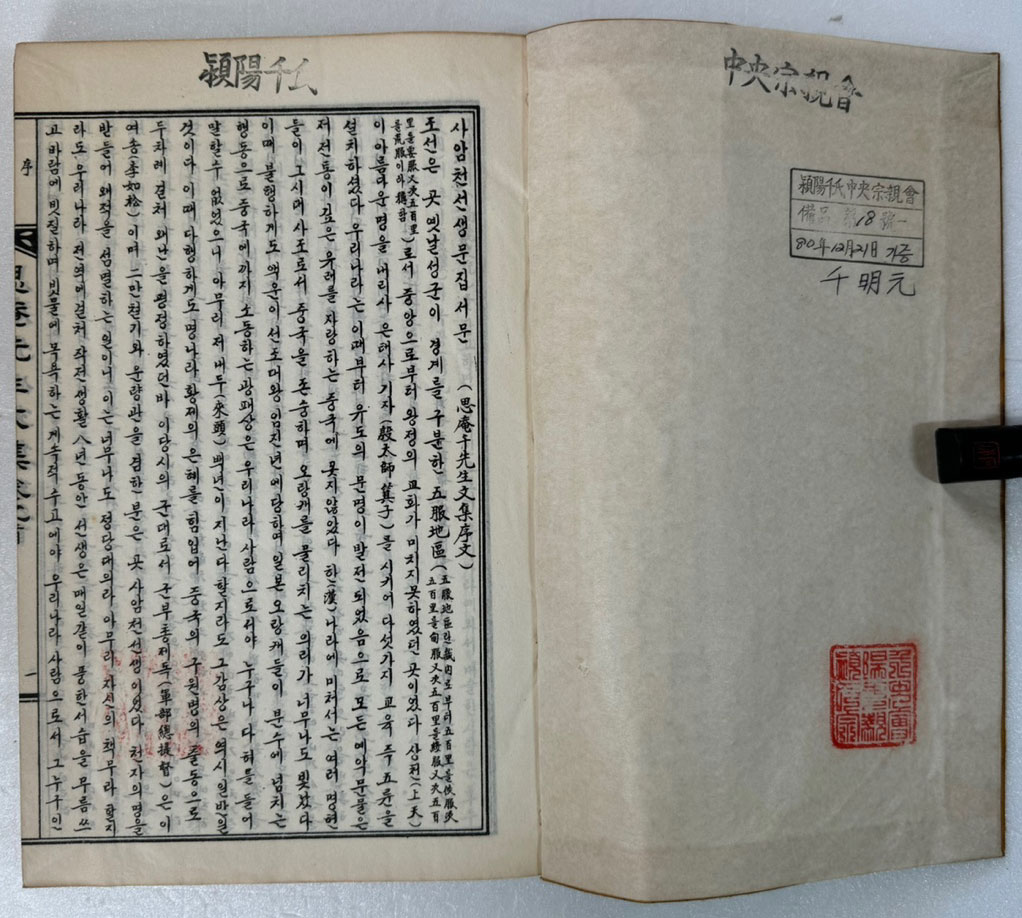 中央宗親會
潁陽千氏中央宗親會
備品 第18號
80年12月21日 기증
千明元
潁陽千氏
사암천선생문집 서문 (思庵千先生文集序文)
조선은 곳 옛날성군이 경계를 구분한 五服地區(五服地區란 畿内로부터五百里를 侯服又次五百里를甸服又次五百里를綏服又次五百
里를要服又次五百里를荒服이라 稱함)로서 중앙으로부터 왕정의 교화가 미치지못하였던 곳이였다 상천(上天)
이 아름다운 명을 내리사 은태사 기자(殷太師箕子)를 시키어 다섯가지 교육 즉 五륜을
설치하셨다 우리나라는 이때부터 유도의 문명이 발전되었음으로 모든 예악문물은
저전통이깊은 유래를 자랑하는 중국에 못지않았다 한(漢)나라에 미처서는 여러 명현
들이 그시대사조로서 중국을 존숭하며 오랑캐를 물리치는 의리가 너무나도 빛났다
이때 불행하게도 액운이 선조대왕 임진년에당하여 일본 오랑캐들이 분수에 넘치는
행동으로 중국에까지 소동하는 광패상은 우리나라 사람으로서야 누구나 다 혀를 들어
말할수 없었으니 아무리 저 내두(來頭) 백년이 지난다 할지라도 그감상은 역시 일반일
것이다 이때 다행하게도 명나라 황제의 은혜를 힘입어 중국의 구원명의 출동으로
두차례 걸처 왜난을 평정하였던바 이당시의 군대로서 군부총제독(軍部總提督)은 이
여송(李如松)이며 二만천기와 운량관을 겸한분은 곳 사암천선생이였다 천자의 명을
받들어 왜적을 섬멸하는 일이니 이는 너무나도 정당대의라 아무리 자신의 책무라 할지
라도 우리나라 전역에걸처 작전생활 八년동안 선생은 매일같이 풍한서습을 무릅쓰
고 바람에 빗질하며 빗물에 목욕하는 계속적 수고에야 우리나라 사람으로서 그누구인
序
一